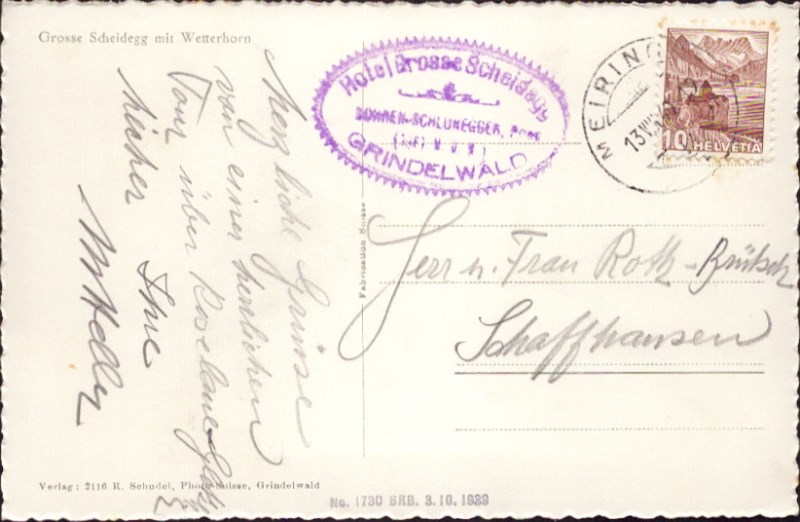 Grosse Scheidegg mit Wetterhorn
Herzliche Grüsse
von einer herrlichen
Tour über Rosenlaui
Ihre
Hotel Grosse Scheidegg
BOHREN-SCHLUNEGGER, Prop.
GRINDELWALD
MEIRING
10 HELVETIA
Herr u. Frau Roth-Brütsch
Schaffhausen
Fabrication Suisse
Verlag: 2116 R. Schudel, Photo-Suisse, Grindelwald
No. 1730 BRB. 3.10.1939